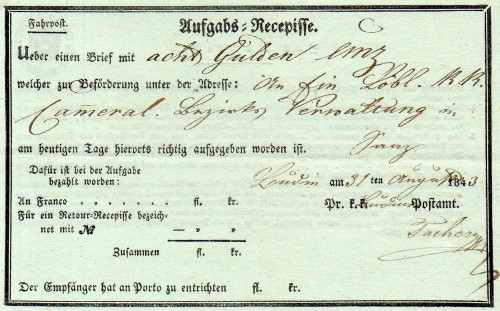 Fahrpost.
Aufgabs-Recepisse.
Ueber einen Brief mit acht Gulden
welcher zur Beförderung unter der Adresse: An Ein Löbl. K. K.
Cammeral. Bezirks Verwaltung in
am heutigen Tage hierorts richtig aufgegeben worden ist. Saaz
Dafür ist bei der Aufgabe
bezahlt worden:
am 31 ten August 1843.
An Franco fl. kr.
Pr. k. k. Postamt.
Für ein Retour-Recepisse bezeich-
net mit № — „ „
Zusammen fl. kr.
Der Empfänger hat an Porto zu entrichten fl. kr.